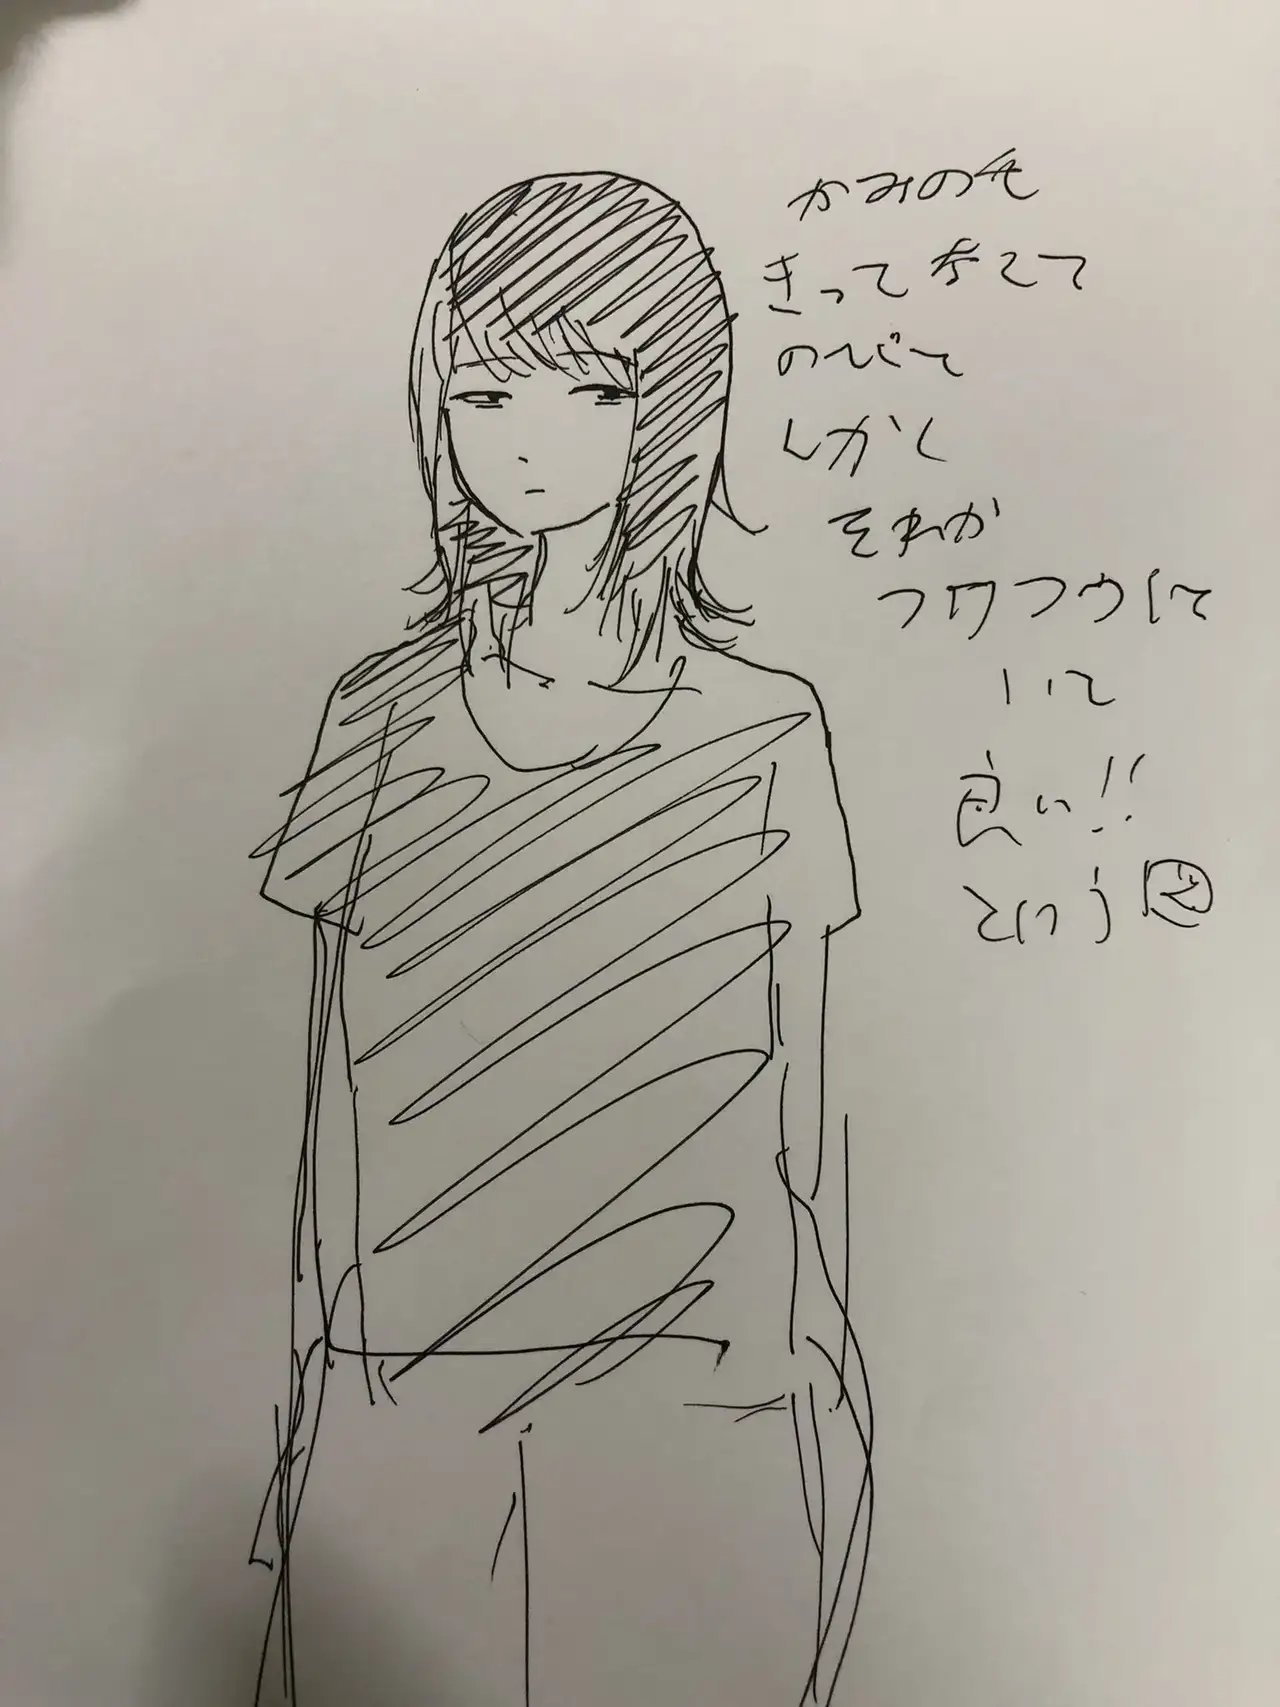 かみのも
きって考えて
のびて
しかし
それが
フワフワして
いて
良い!!
という図